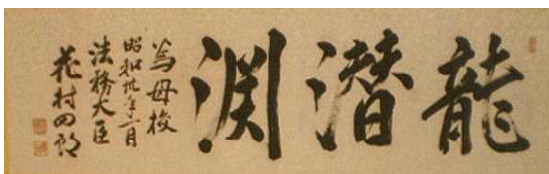 龍潜渕
為母校
昭和卅年一月
法務大臣
花村四郎